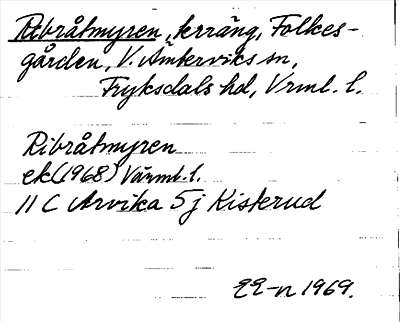 Ribråtmyren, terräng, Folkes-
gården, V. Ämterviks sn,
Fryksdals hd, Vrml. l.
Ribråtmyren
ek (1968) Värml. l.
11 C Arvika 5 j Kisterud
EE-n 1969.